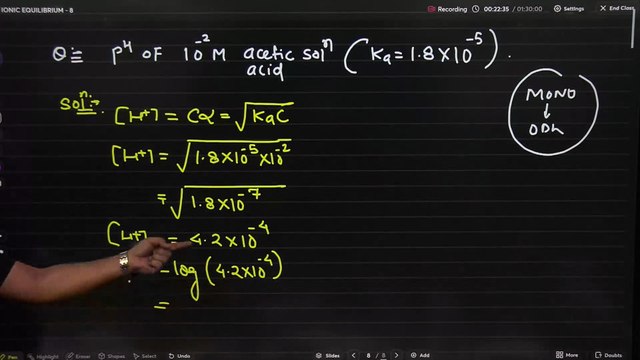 IONIC EQUILIBRIUM - 8
Recording 00:22:35 / 01:30:00 Settings End Class
Q≡ pH OF 10⁻² M acetic solⁿ (Ka = 1.8×10⁻⁵).
acid
Solⁿ:- [H+] = Cα = √KaC
MONO
↓
[H+] = √1.8×10⁻⁵×10⁻²
= √1.8×10⁻⁷
[H+] = 4.2×10⁻⁴
- log (4.2×10⁻⁴)
=
Pen Highlighter Eraser Select Shapes Insert Undo Slides 8 / 8 Poll Doubts